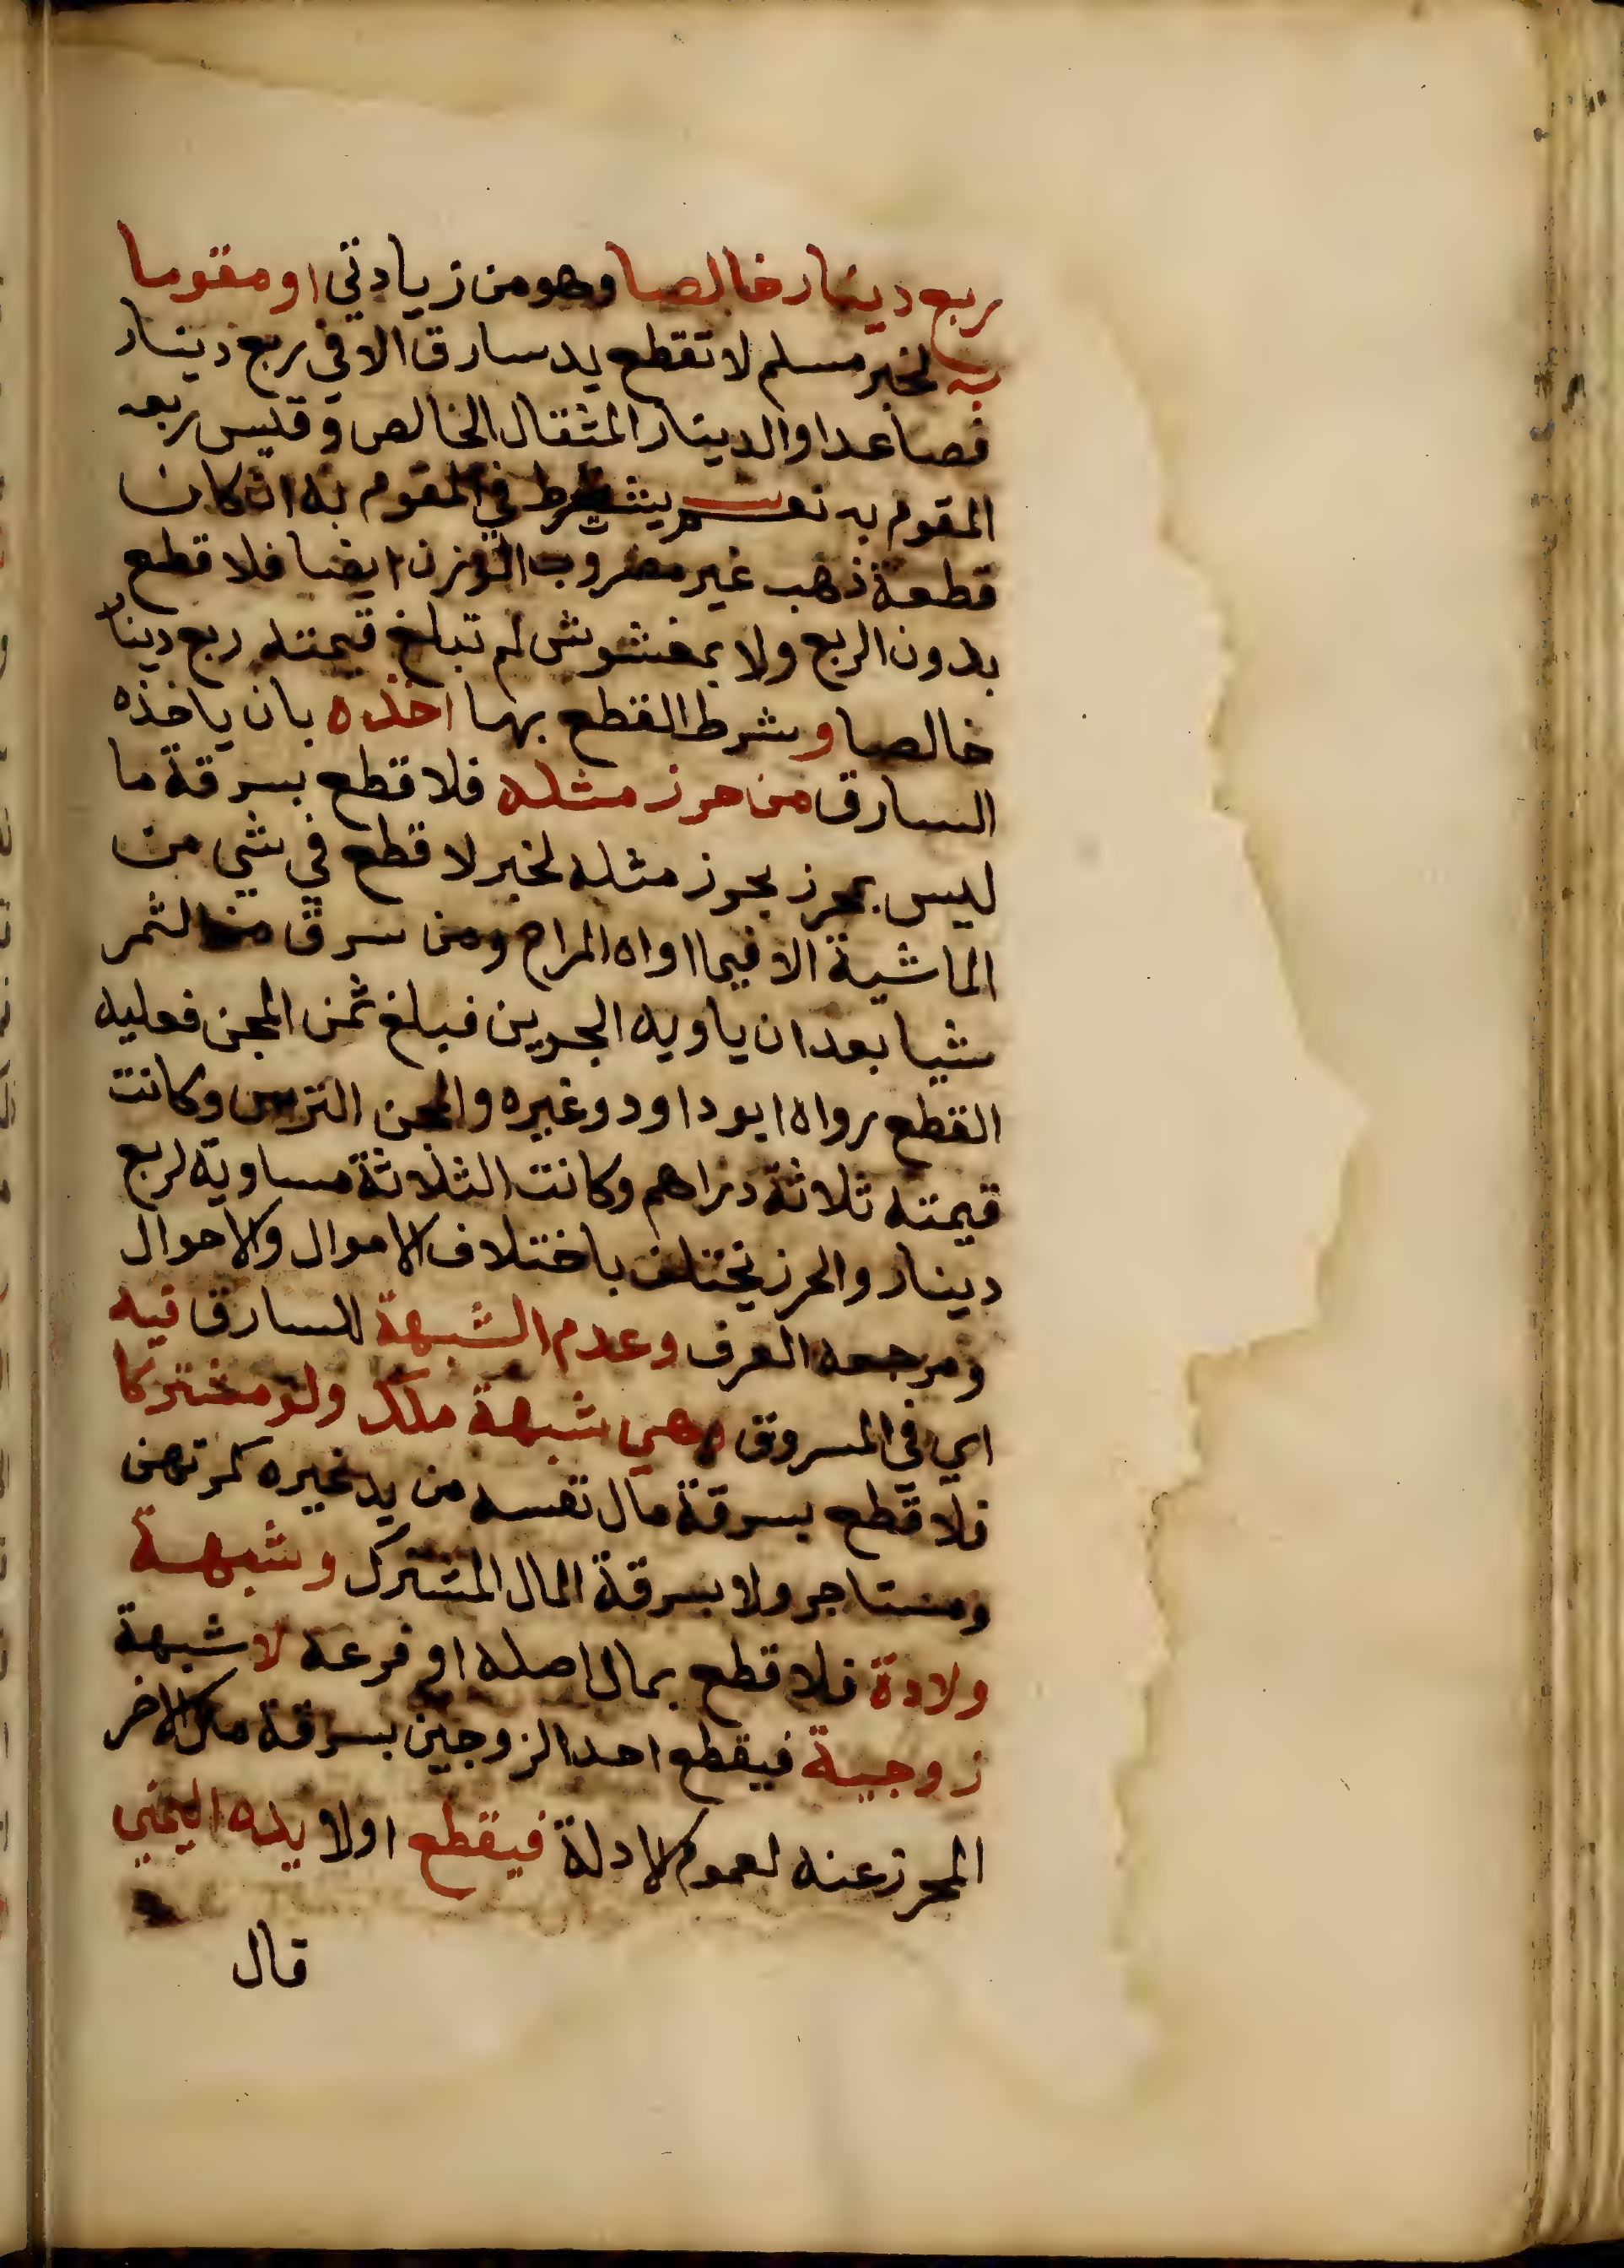 ربع دينار خالصا وهو من زيادتي او مقوما
به لخبر مسلم لا تقطع يد سارق الا في ربع دينار
فصاعدا والدينار المثقال الخالص وقيس ربعه
المقوم به نعم يشترط في المقوم به ان كان
قطعة ذهب غير مضروب الوزن ايضا فلا قطع
بدون الربع ولا بمغشوش لم تبلغ قيمته ربع دينار
خالصا وشرط القطع بها اخذه بان ياخذه
السارق من حرز مثله فلا قطع بسرقة ما
ليس بمحرز بحرز مثله لخبر لا قطع في شي من
الماشية الا فيما اواه المراح ومن سرق من الثمر
شيا بعد ان ياويه الجرين فبلغ ثمن المجن فعليه
القطع رواه ابو داود وغيره والمجن الترس وكانت
قيمته ثلاثة دراهم وكانت الثلاثة مساوية لربع
دينار والحرز يختلف باختلاف الاموال والاحوال
ومرجعه العرف وعدم الشبهة للسارق فيه
اي في المسروق وهي شبهة ملك ولو مشتركا
فلا قطع بسرقة مال نفسه من يد غيره كمرتهن
ومستاجر ولا بسرقة المال المشترك وشبهة
ولادة فلا قطع بمال اصله او فرعه لا شبهة
زوجية فيقطع احد الزوجين بسرقة مال الاخر
المحرز عنه لعموم الادلة فيقطع اولا يده اليمنى
قال